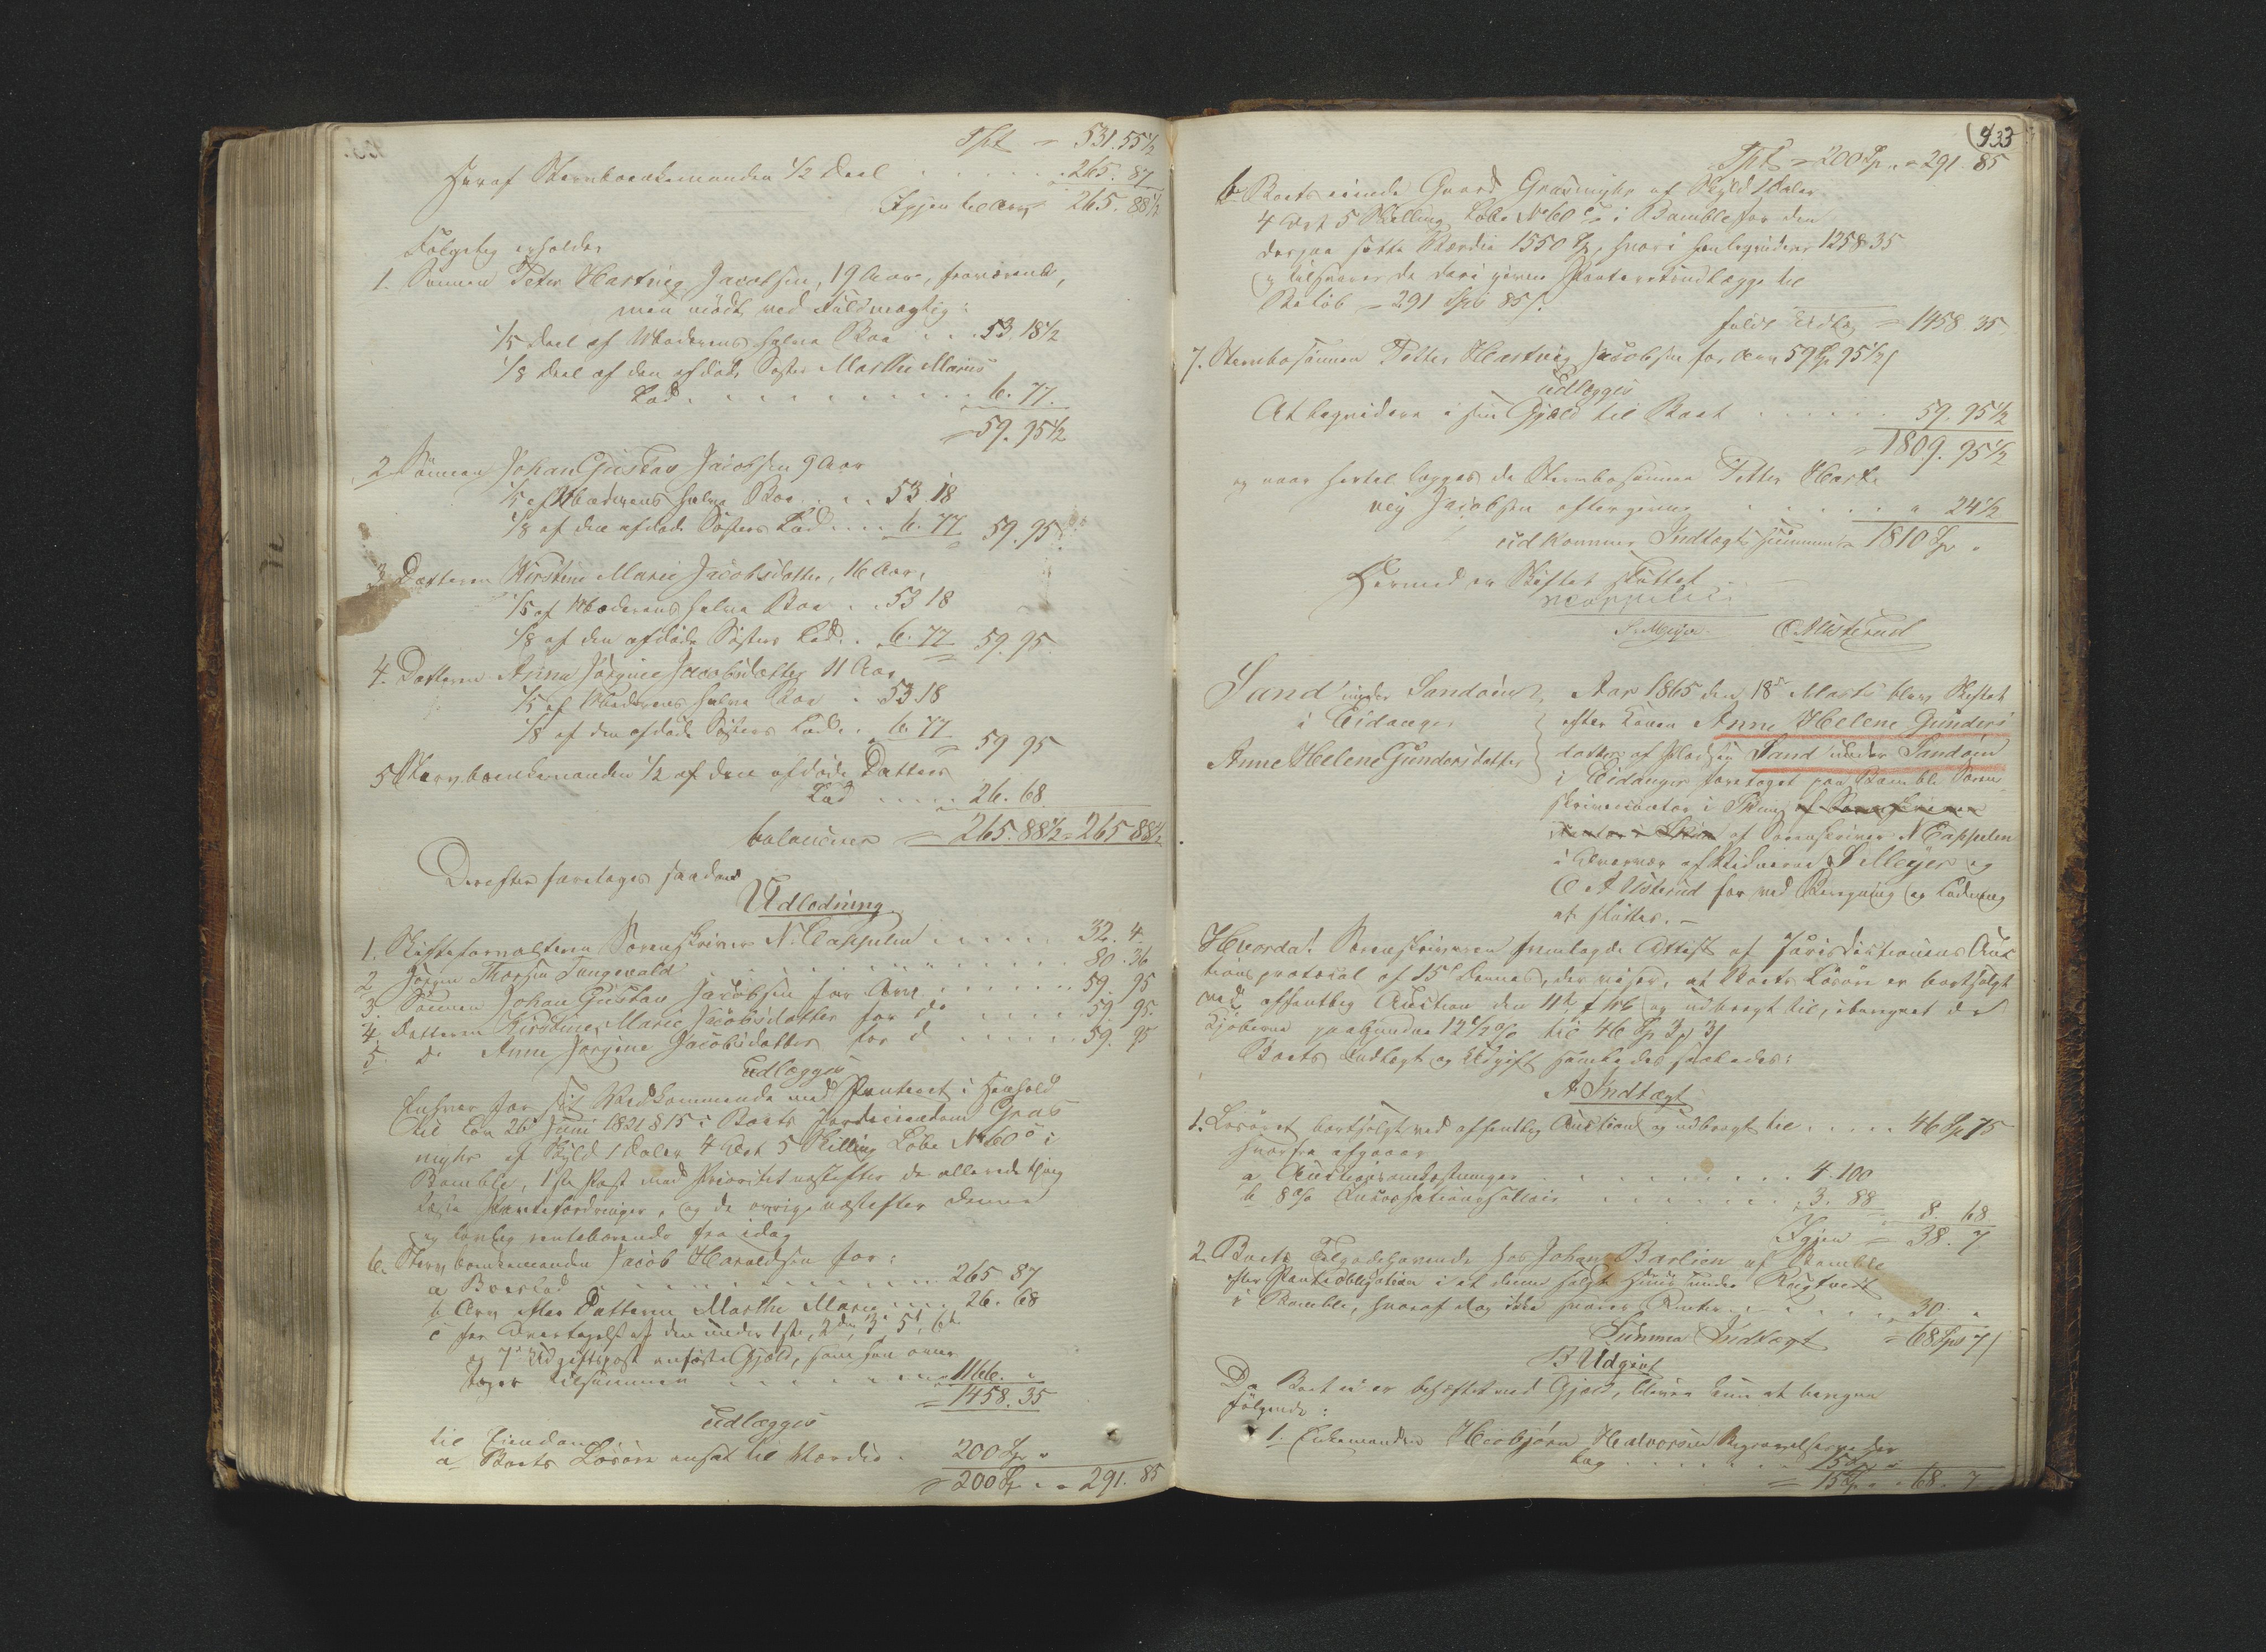 Tpt = 531.55½
Heraf Stervboenkemanden ½ Deel . . . . . 265. 87
Igjen til Arv 265. 88½
Følgelig erholder
1. Sønnen Peter Hartvig Jacobsen, 19 Aar, fraværende,
men mødt ved Fuldmægtig:
1/5 Deel af Moderens halve Boe . . . 53. 18½
1/8 Deel af den afdøde Søster Marthe Maries
Lod . . . . . . . . . . 6. 77.
= 59. 95½
2 Sønnen Johan Gustav Jacobsen 9 Aar
1/5 af Moderens halve Boe . . . 53. 18
1/8 af den afdøde Søsters Lod . . . 6. 77 59. 95
3 Datteren Kirstine Marie Jacobsdatter, 16 Aar,
1/5 af Moderens halve Boe . . 53 18
1/8 af den afdøde Søsters Lod . . 6. 77 59. 95.
4. Datteren Anne Jørgine Jacobsdatter 11 Aar
1/5 af Moderens halve Boe . 53 18
1/8 af den afdøde Søsters Lod . . 6. 77 59 95
5 Stervboenkemanden ½ af den afdøde Datters
Lod . . . . 26. 68
balancerer = 265. 88½ = 265 88½
Derefter foretages saadan
Udlodning
1. Skifteforvalteren Sorenskriver N. Cappelen . . . . . 32. 4.
2 Jørgen Thorsen Tangevald . . . . . . . . 80. 36
3. Sønnen Johan Gustav Jacobsen for Arv . . . . . 59. 95
4. Datteren Kirstine Marie Jacobsdatter for do . . . . 59. 95.
5. do Anne Jørgine Jacobsdatter for d . . . . . 59. 95
Udlægges
Enhver for sit Vedkommende med Panteret i Henhold
til Lov 26 Juni 1821 § 15 i Boets Jordeiendom Gras
myhr af Skyld 1 Daler 4 Ort 5 Skilling Løbe No 60 c i
Bamble, 1ste Post med Prioritet næstefter de allerede thing
læste Pantefordringer, og de øvrige næstefter denne
og lovlig rentebærende fra idag
6. Stervboenkemanden Jacob Haraldsen for:
a Boeslod . . . . . . . . . . 265 87
b Arv efter Datteren Marthe Marie . . . . 26. 68
c for Overtagelse af den under 1ste, 2den, 3, 5t, 6te
og 7de Udgiftspost anførte Gjæld, som han over
tager tilsammen . . . . . . . . 1166. "
= 1458. 35
Udlægges
til Eiendom
a Boets Løsøre ansat til Værdie . 200 Sp "
= 200 Sp " = 291. 85
433
Tpt = 200 Sp. " = 291. 85
b. Boets eiende Gaard Grasmyhr af Skyld 1 Daler
4 Ort 5 Skilling Løbe No 60 c i Bamble for den
derpaa satte Værdie 1550 Sp, hvori han liqviderer 1258 35
og tilsvarer de deri givne Panteretsudlægge til
Beløb = 291 Sp 85 s.
fuldt Udlæg = 1458. 35
7. Stervbosønnen Petter Hartvig Jacobsen for Arv 59 Sp 95½ s
udlægges
At liqvidere i sin Gjæld til Boet . . . . . . 59. 95½
= 1809. 95½
og naar hertil lægges de Stervbosønnen Petter Hart
vig Jacobsen eftergivne . . . . . . " 24½
udkommer Indtægtssummen = 1810 Sp "
Hermed er Skiftet sluttet
N Cappelen
S. Meyer. O A Usterud
Sand under Sandøen
i Eidanger
Anne Helene Gundersdatter
Aar 1865 den 18de Marts blev Skiftet
efter Konen Anne Helene Gunders
datter af Pladsen Sand under Sandøen
i Eidanger foretaget paa Bamble Soren
skrivercontor i Skien af Sorenskriver N Cappelen
i Overvær af Vidnerne S. Meyer og
O A Usterud for ved Beregning og Lodning
at sluttes. —
Hvorda! Sorenskriveren fremlagde Attest af Jurisdictionens Auc
tionsprotocol af 15de dennes, der viser, at Boets Løsøre er bortsolgt
ved offentlig Auction den 11te f M og udbragt til, iberegnet de
Kjøberne paalignede 12½ % til 46 Sp 3 s
Boets Indtægt og Udgift samledes saaledes:
A Indtægt
1. Løsøret bortsolgt ved offentlig Auction og udbragt til . . . . . 46 Sp 75
hvorfra afgaaer
a. Auctionsomkostninger . . . . . . . . 4. 100
b 8 % Incassationssallair . . . . . . 3. 88 8. 68
Igjen = 38. 7
2. Boets Tilgodehavende hos Johan Baslien af Bamble
efter Pantobligation i et denne solgt Huus under Rugtvedt
i Bamble, hvoraf dog ikke svares Renter . . . . . . 30. "
Summa Indtægt = 68 Sp 7 s
B Udgivt
Da Boet ei er behæftet med Gjæld, bliver kun at beregne
følgende:
1. Enkemanden Herbjørn Halvorsen Begravelsesudlæg
læg . . . . . . . . 15 Sp "
= 15 Sp " = 68. 7